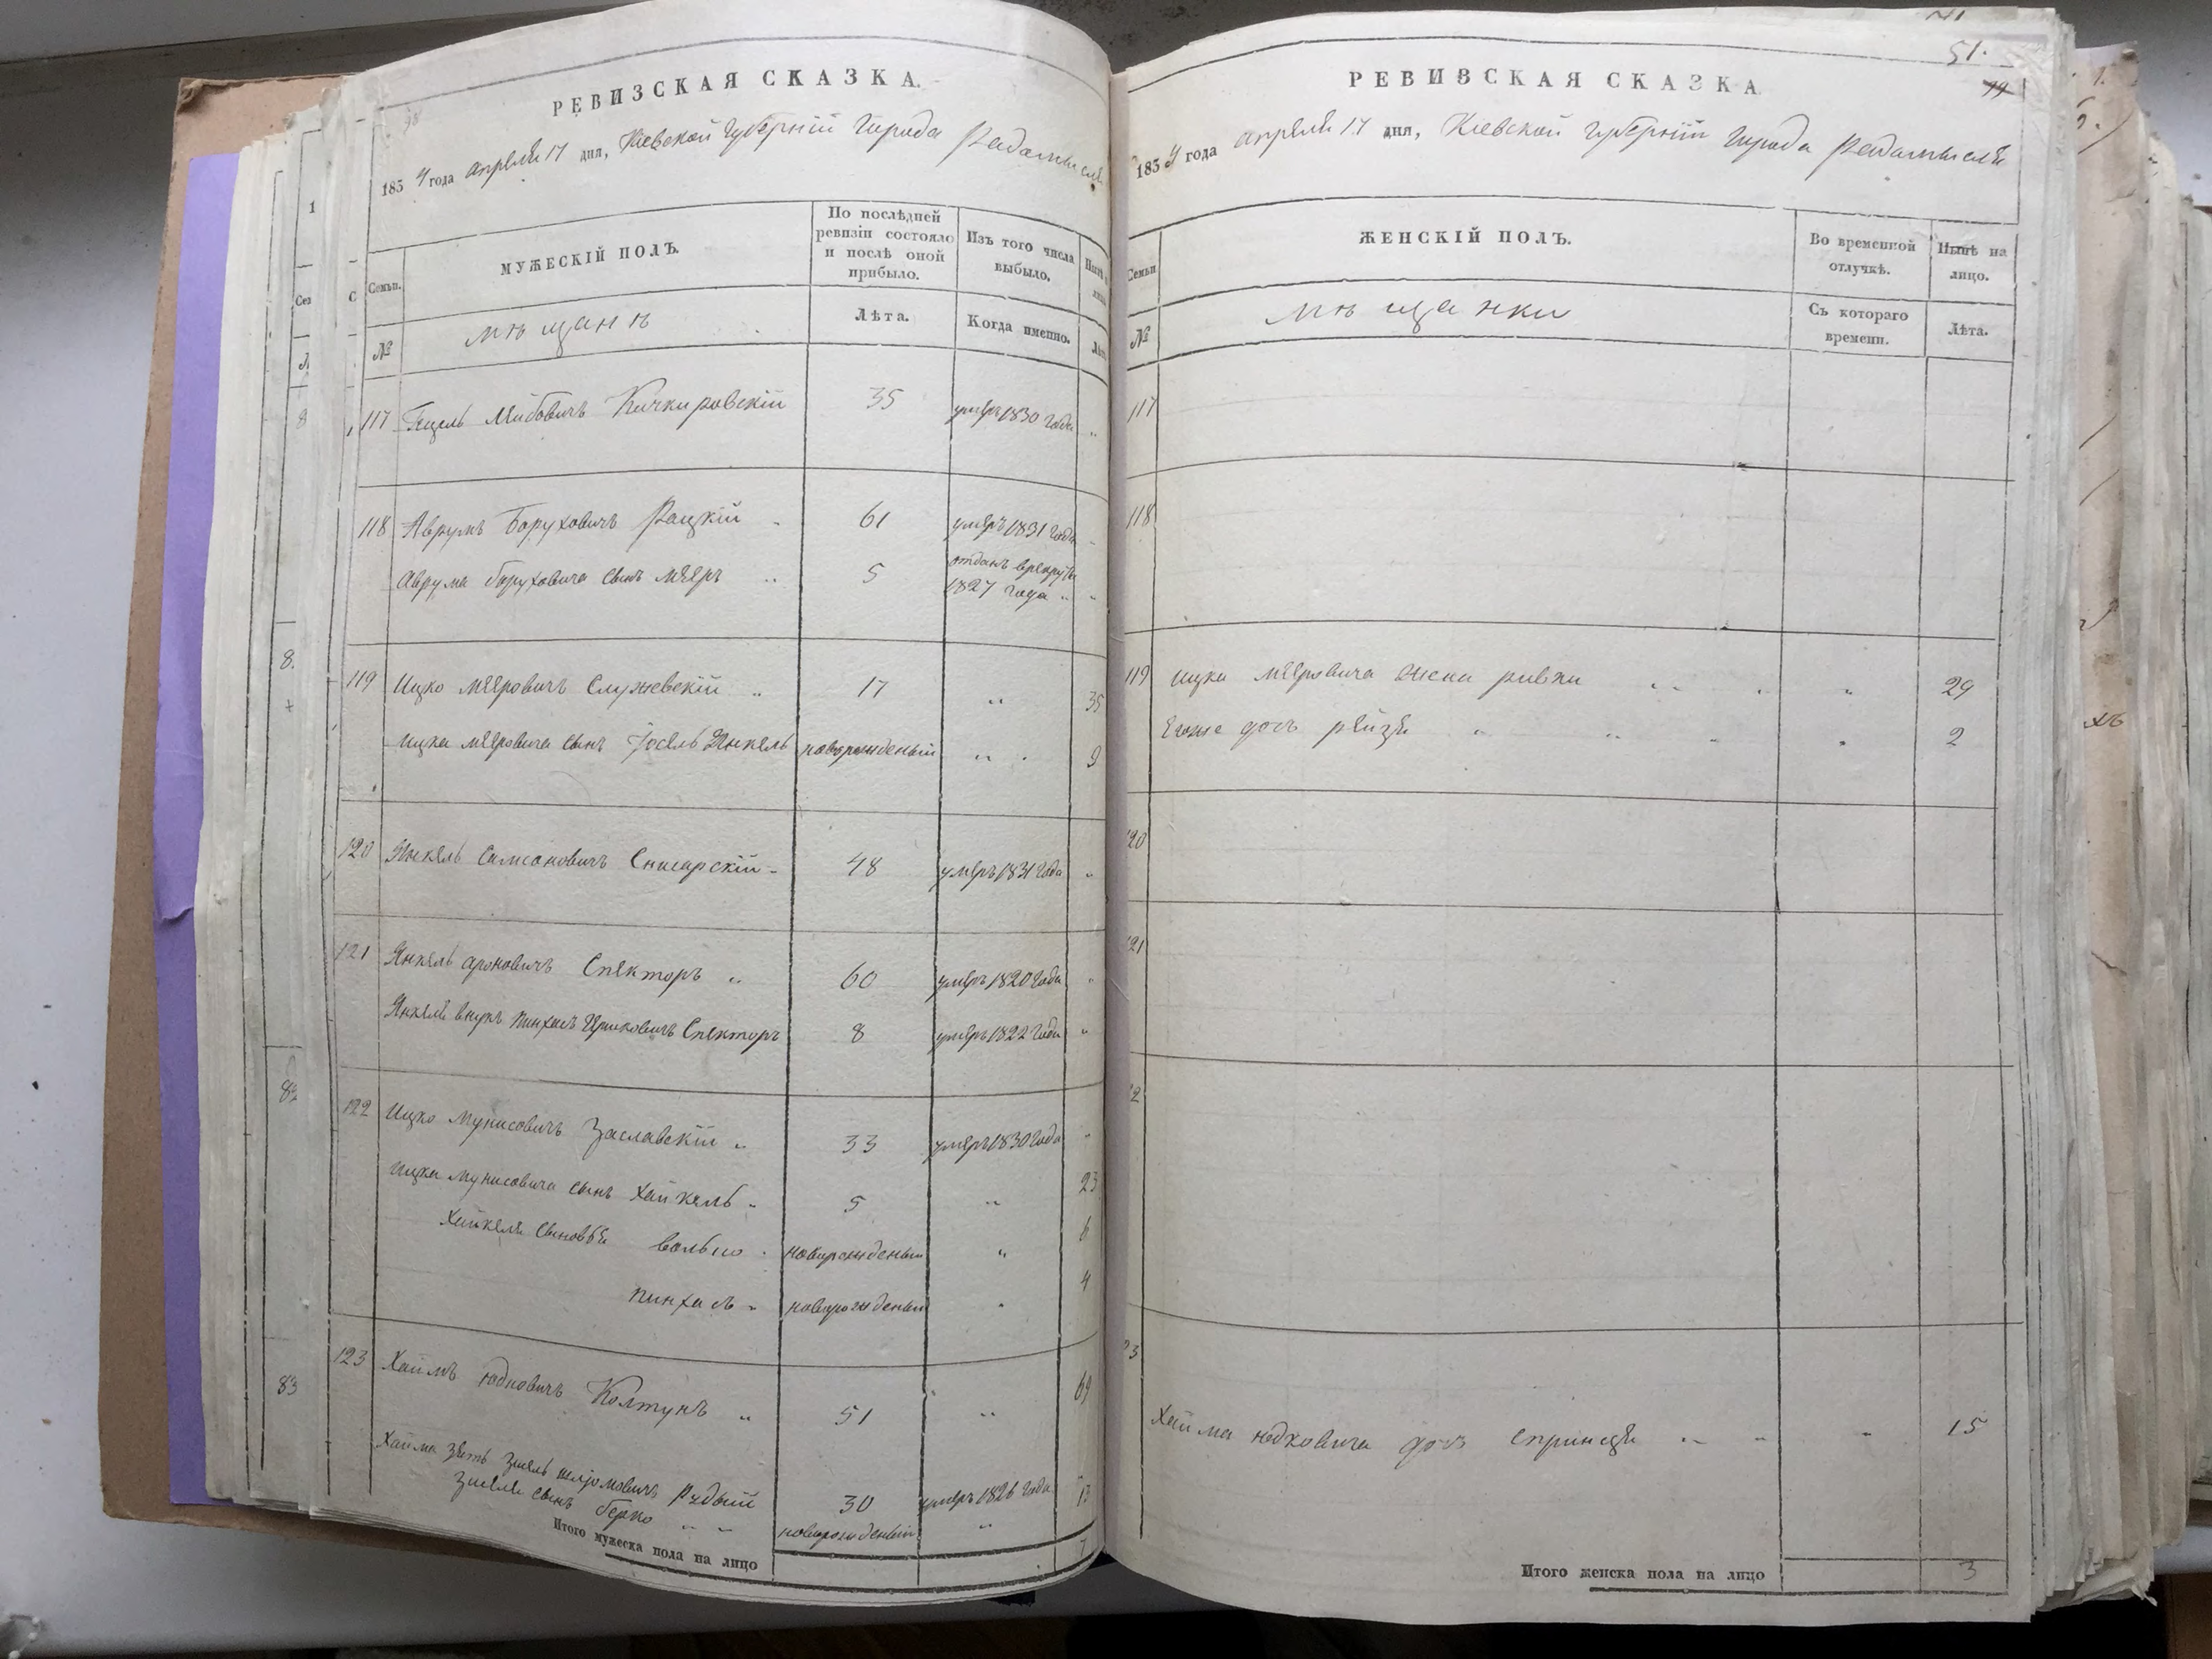 РЕВИЗСКАЯ СКАЗКА.
1834 года апреля 17 дня, Кіевской губерніи города Радомысля
Семьи.
МУЖЕСКІЙ ПОЛЪ.
По послѣдней ревизіи состояло и послѣ оной прибыло.
Изъ того числа выбыло.
№
мѣщанѣ
Лѣта.
Когда именно.
117 Лейбовичъ 35 умеръ 1830 года „
118 Аврумъ Боруховичъ Рацкій 61 умеръ 1831 года
Аврума Боруховича сынъ Мееръ 5 отданъ врекруты
1827 года
119 Ицко Мееровичъ Служевскій 17 „ 35
Ицка Мееровича сынъ Іосель Янкель новорожденый „ 9
120 Янкель Самсоновичъ Снисарскій 48 умеръ 1831 года „
121 Янкель Ароновичъ Спекторъ 60 умеръ 1820 года „
Янкеля внукъ Пинхасъ Спекторъ 8 умеръ 1822 года „
122 Ицко Мунисовичъ Заславскій 33 умеръ 1830 года „
Ицка Мунисовича сынъ Хайкель 5 „ 23
Хайкеля сыновья Волько новорожденый „ 6
Пинхасъ новорожденый „ 4
123 Хаимъ Юдковичъ Колтунъ 51 „ 69
Хаима зять Зисель Рудый 30 умеръ 1826 года
Зиселя сынъ Берко новорожденый „ 13
Итого мужеска пола на лицо 7
51.
РЕВИЗСКАЯ СКАЗКА
1834 года апреля 17 дня, Кіевской губерніи города Радомысля
Семьи
ЖЕНСКІЙ ПОЛЪ.
Во временной отлучкѣ.
Нынѣ на лицо.
№
мѣщанки
Съ котораго времени.
Лѣта.
117
118
119 Ицка Мееровича жена Ривка „ 29
Егоже дочь Рейзя „ 2
20
21
2
3
Хаима Юдковича дочь Спринця „ 15
Итого женска пола на лицо 3